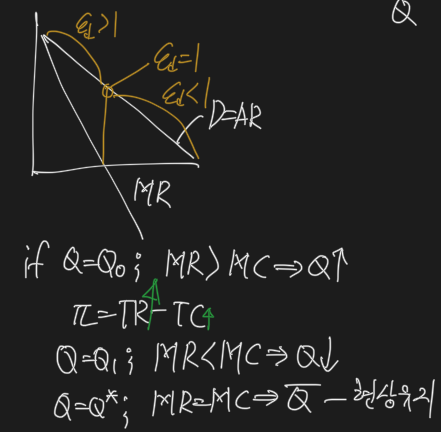 Q
εd>1
εd=1
εd<1
D=AR
MR
if Q=Q₀; MR>MC⇒Q↑
π=TR-TC
Q=Q₁; MR<MC⇒Q↓
Q=Q*; MR=MC⇒Q̅ - 현상유지